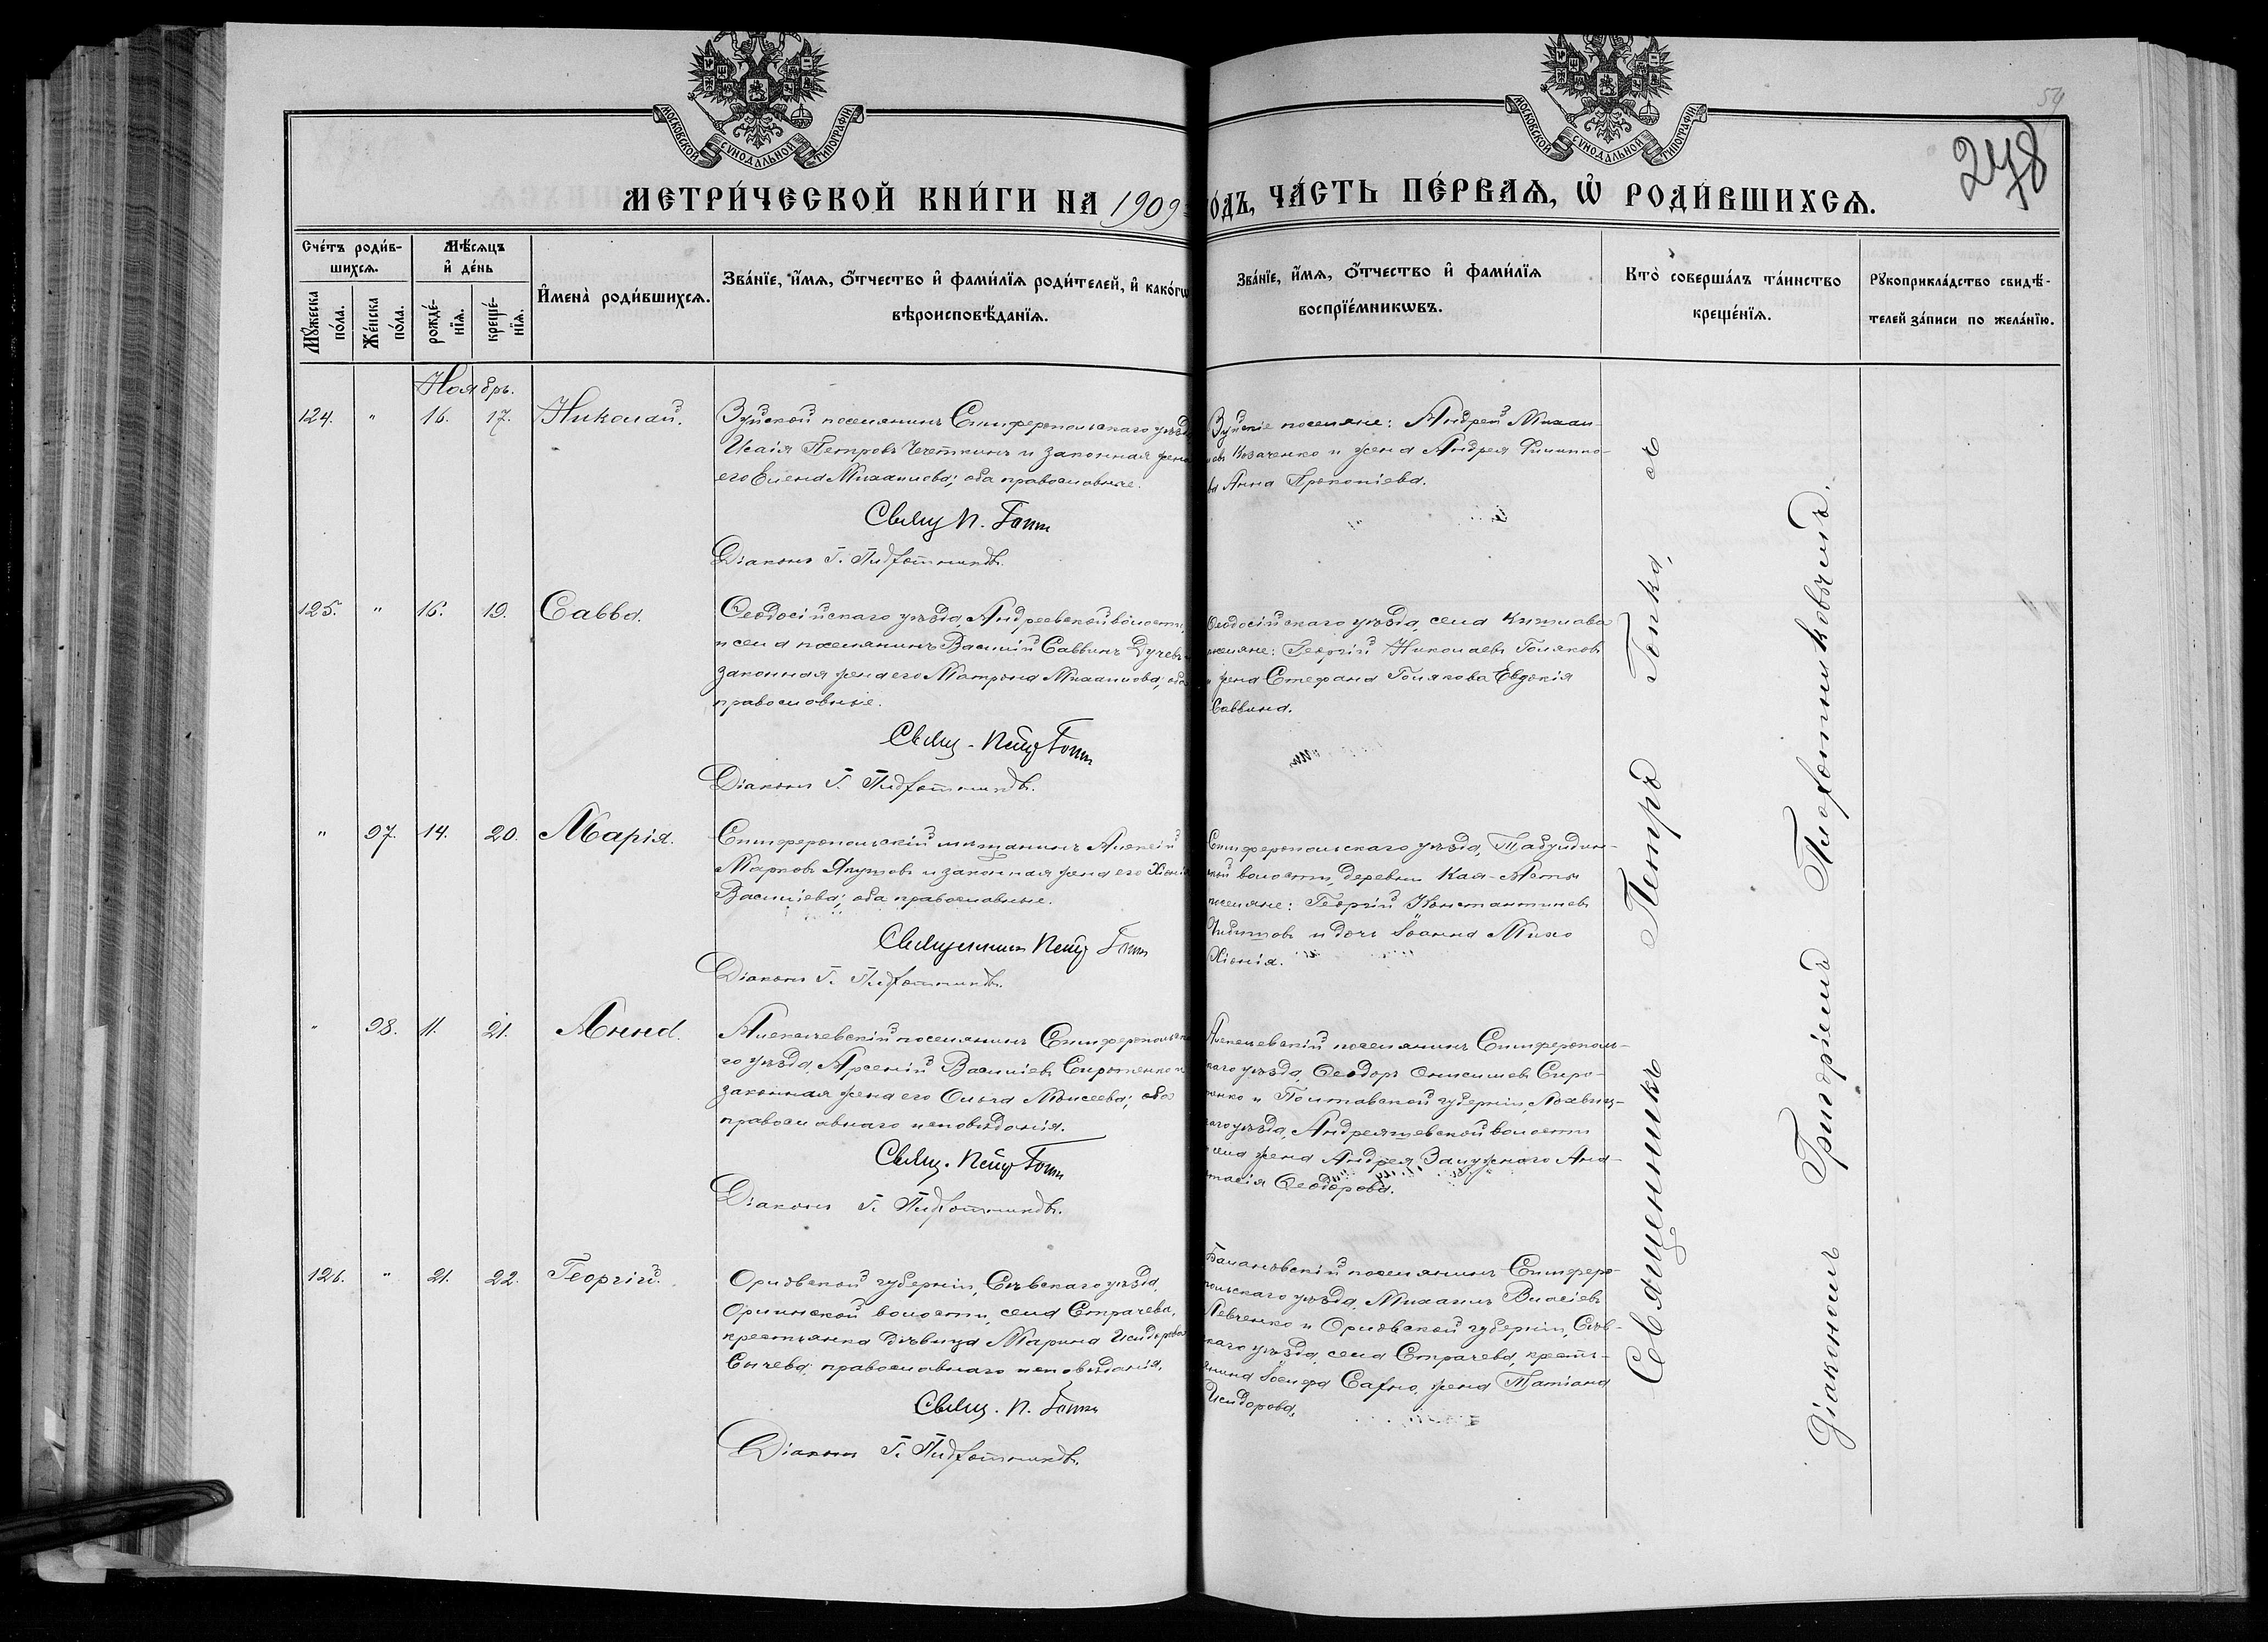 МОСКОВСКОЙ СѴНОДАЛЬНОЙ ТИПОГРАФІИ
МОСКОВСКОЙ СѴНОДАЛЬНОЙ ТИПОГРАФІИ
54
278
МЕТРИ́ЧЕСКОЙ КНИ́ГИ НА 1909
О́ДЪ, ЧА́СТЬ ПЕ́РВАѦ, Ѡ҆ РОДИ́ВШИХСѦ.
Сче́тъ роди́в-
шихсѧ.
Мꙋ́жеска по́ла.
Же́нска по́ла.
Мѣ́сѧцъ
и҆ де́нь
рожде́-
нїѧ.
креще́-
нїѧ.
И҆мена̀ роди́вшихсѧ.
Зва́нїе, и҆́мѧ, ѻ҆́тчество и҆ фами́лїѧ роди́телей, и҆ како́гѡ
вѣроисповѣ́данїѧ.
Зва́нїе, и҆́мѧ, ѻ҆́тчество и҆ фами́лїѧ
воспрїе́мникѡвъ.
Кто̀ соверша́лъ та́инство
креще́нїѧ.
Рꙋкоприкла́дство свидѣ́-
телей за́писи по жела́нїю.
Ноябрь.
124. " 16. 17. Николай.
Зуйской поселянинъ Симферопольскаго уѣзда
Исаія Петровъ Четкинъ и законная жена
его Елена Михаилова; оба православные.
Свящ П. Гопк
Діаконъ Г.
Зуйскіе поселяне: Андрей Михаи-
ловъ Козаченко и жена Андрея Филиппо-
ва Анна Прокопіева.
125. " 16. 19. Савва.
Ѳеодосійскаго уѣзда, Андреевской волости,
и села поселянинъ Василій Саввинъ Дучевъ и
законная жена его Матрона Михаилова; оба
православные.
Свящ. Петр Гопк
Діаконъ Г.
Ѳеодосійскаго уѣзда, села Кишлава
поселяне: Георгій Николаевъ Поляковъ
и жена Стефана Полякова Евдокія
Саввина.
" 97. 14. 20. Марія.
Симферопольскій мѣщанинъ Алексій
Марковъ Якушовъ и законная жена его Хіонія
Василіева; оба православные.
Священник Петр Гопк
Діаконъ Г.
Симферопольскаго уѣзда, Табулдин-
ской волости, деревни
поселяне: Георгій Константиновъ
и дочь Іоанна Михо
Хіонія.
" 98. 11. 21. Анна.
поселянинъ Симферопольска-
го уѣзда, Арсеній Василіевъ Сироженко и
законная жена его Ольга Моисеева; оба
православнаго исповѣданія.
Свящ. Петр Гопк
Діаконъ Г.
поселянинъ Симферополь-
скаго уѣзда, Ѳеодоръ Онисимовъ Сиро-
женко и Полтавской губерніи, Лохвиц-
каго уѣзда, Андреяшевской волости
и села жена Андрея Залужнаго Ана-
стасія Ѳеодорова.
126. " 21. 22. Георгій.
Орловской губерніи, Сѣвскаго уѣзда,
волости, села Страчева,
крестьянка дѣвица Марина Исидорова
Сычева; православнаго исповѣданія.
Свящ. П. Гопк
Діаконъ Г.
поселянинъ Симферо-
польскаго уѣзда, Михаилъ Власіевъ
Левченко и Орловской губерніи, Сѣв-
скаго уѣзда, села Страчева, кресть-
янина Іосифа жена Татіана
Исидорова.
Священникъ Петръ Гопка, съ
Діакономъ Григоріемъ